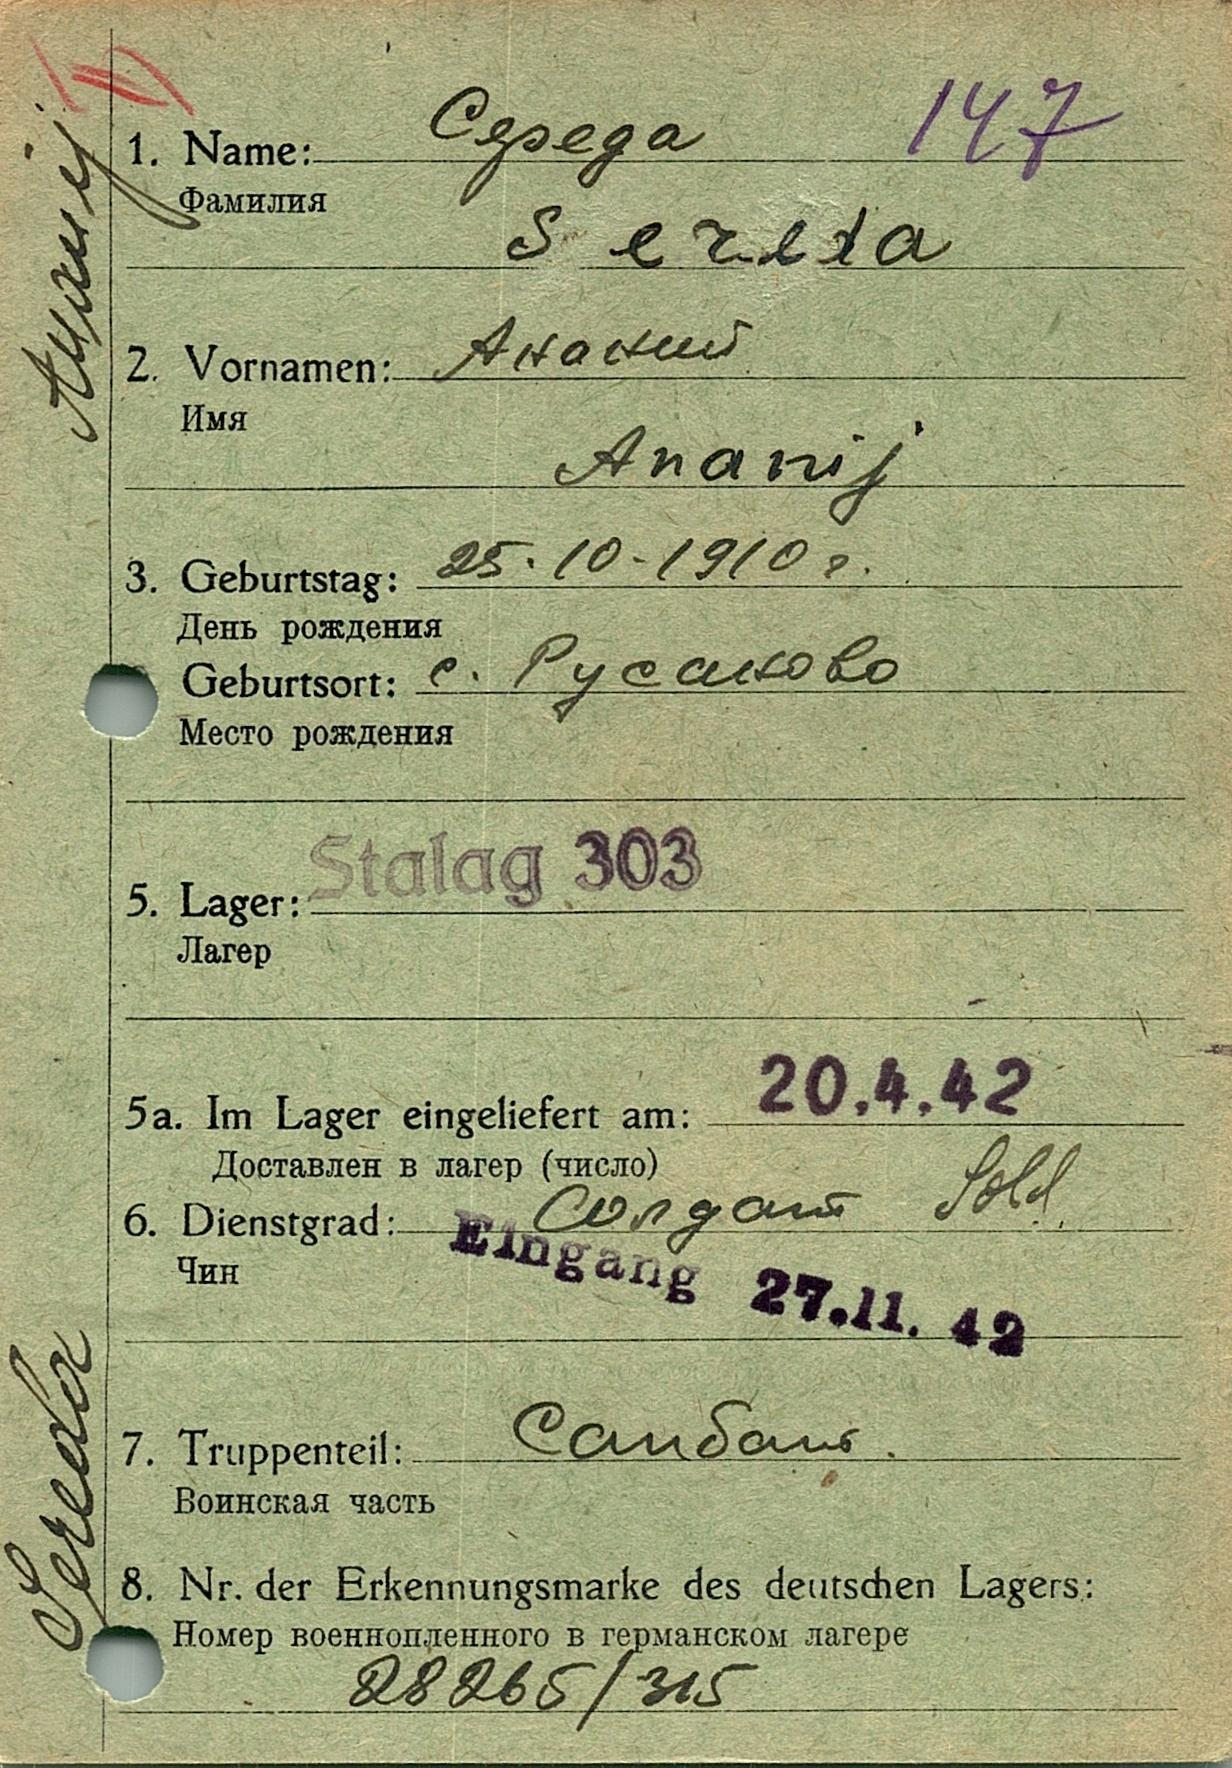 147
1. Name: Середа
Фамилия
Sereda
2. Vornamen: Ананий
Имя
Ananij
3. Geburtstag: 25.10-1910 г.
День рождения
Geburtsort: с. Русаково
Место рождения
Stalag 303
5. Lager:
Лагер
5a. Im Lager eingeliefert am: 20.4.42
Доставлен в лагер (число)
6. Dienstgrad: Солдат Sold.
Чин
Eingang 27.11.42
7. Truppenteil: Санбат.
Воинская часть
8. Nr. der Erkennungsmarke des deutschen Lagers:
Номер военнопленного в германском лагере
28265/315
Sereda Ananij